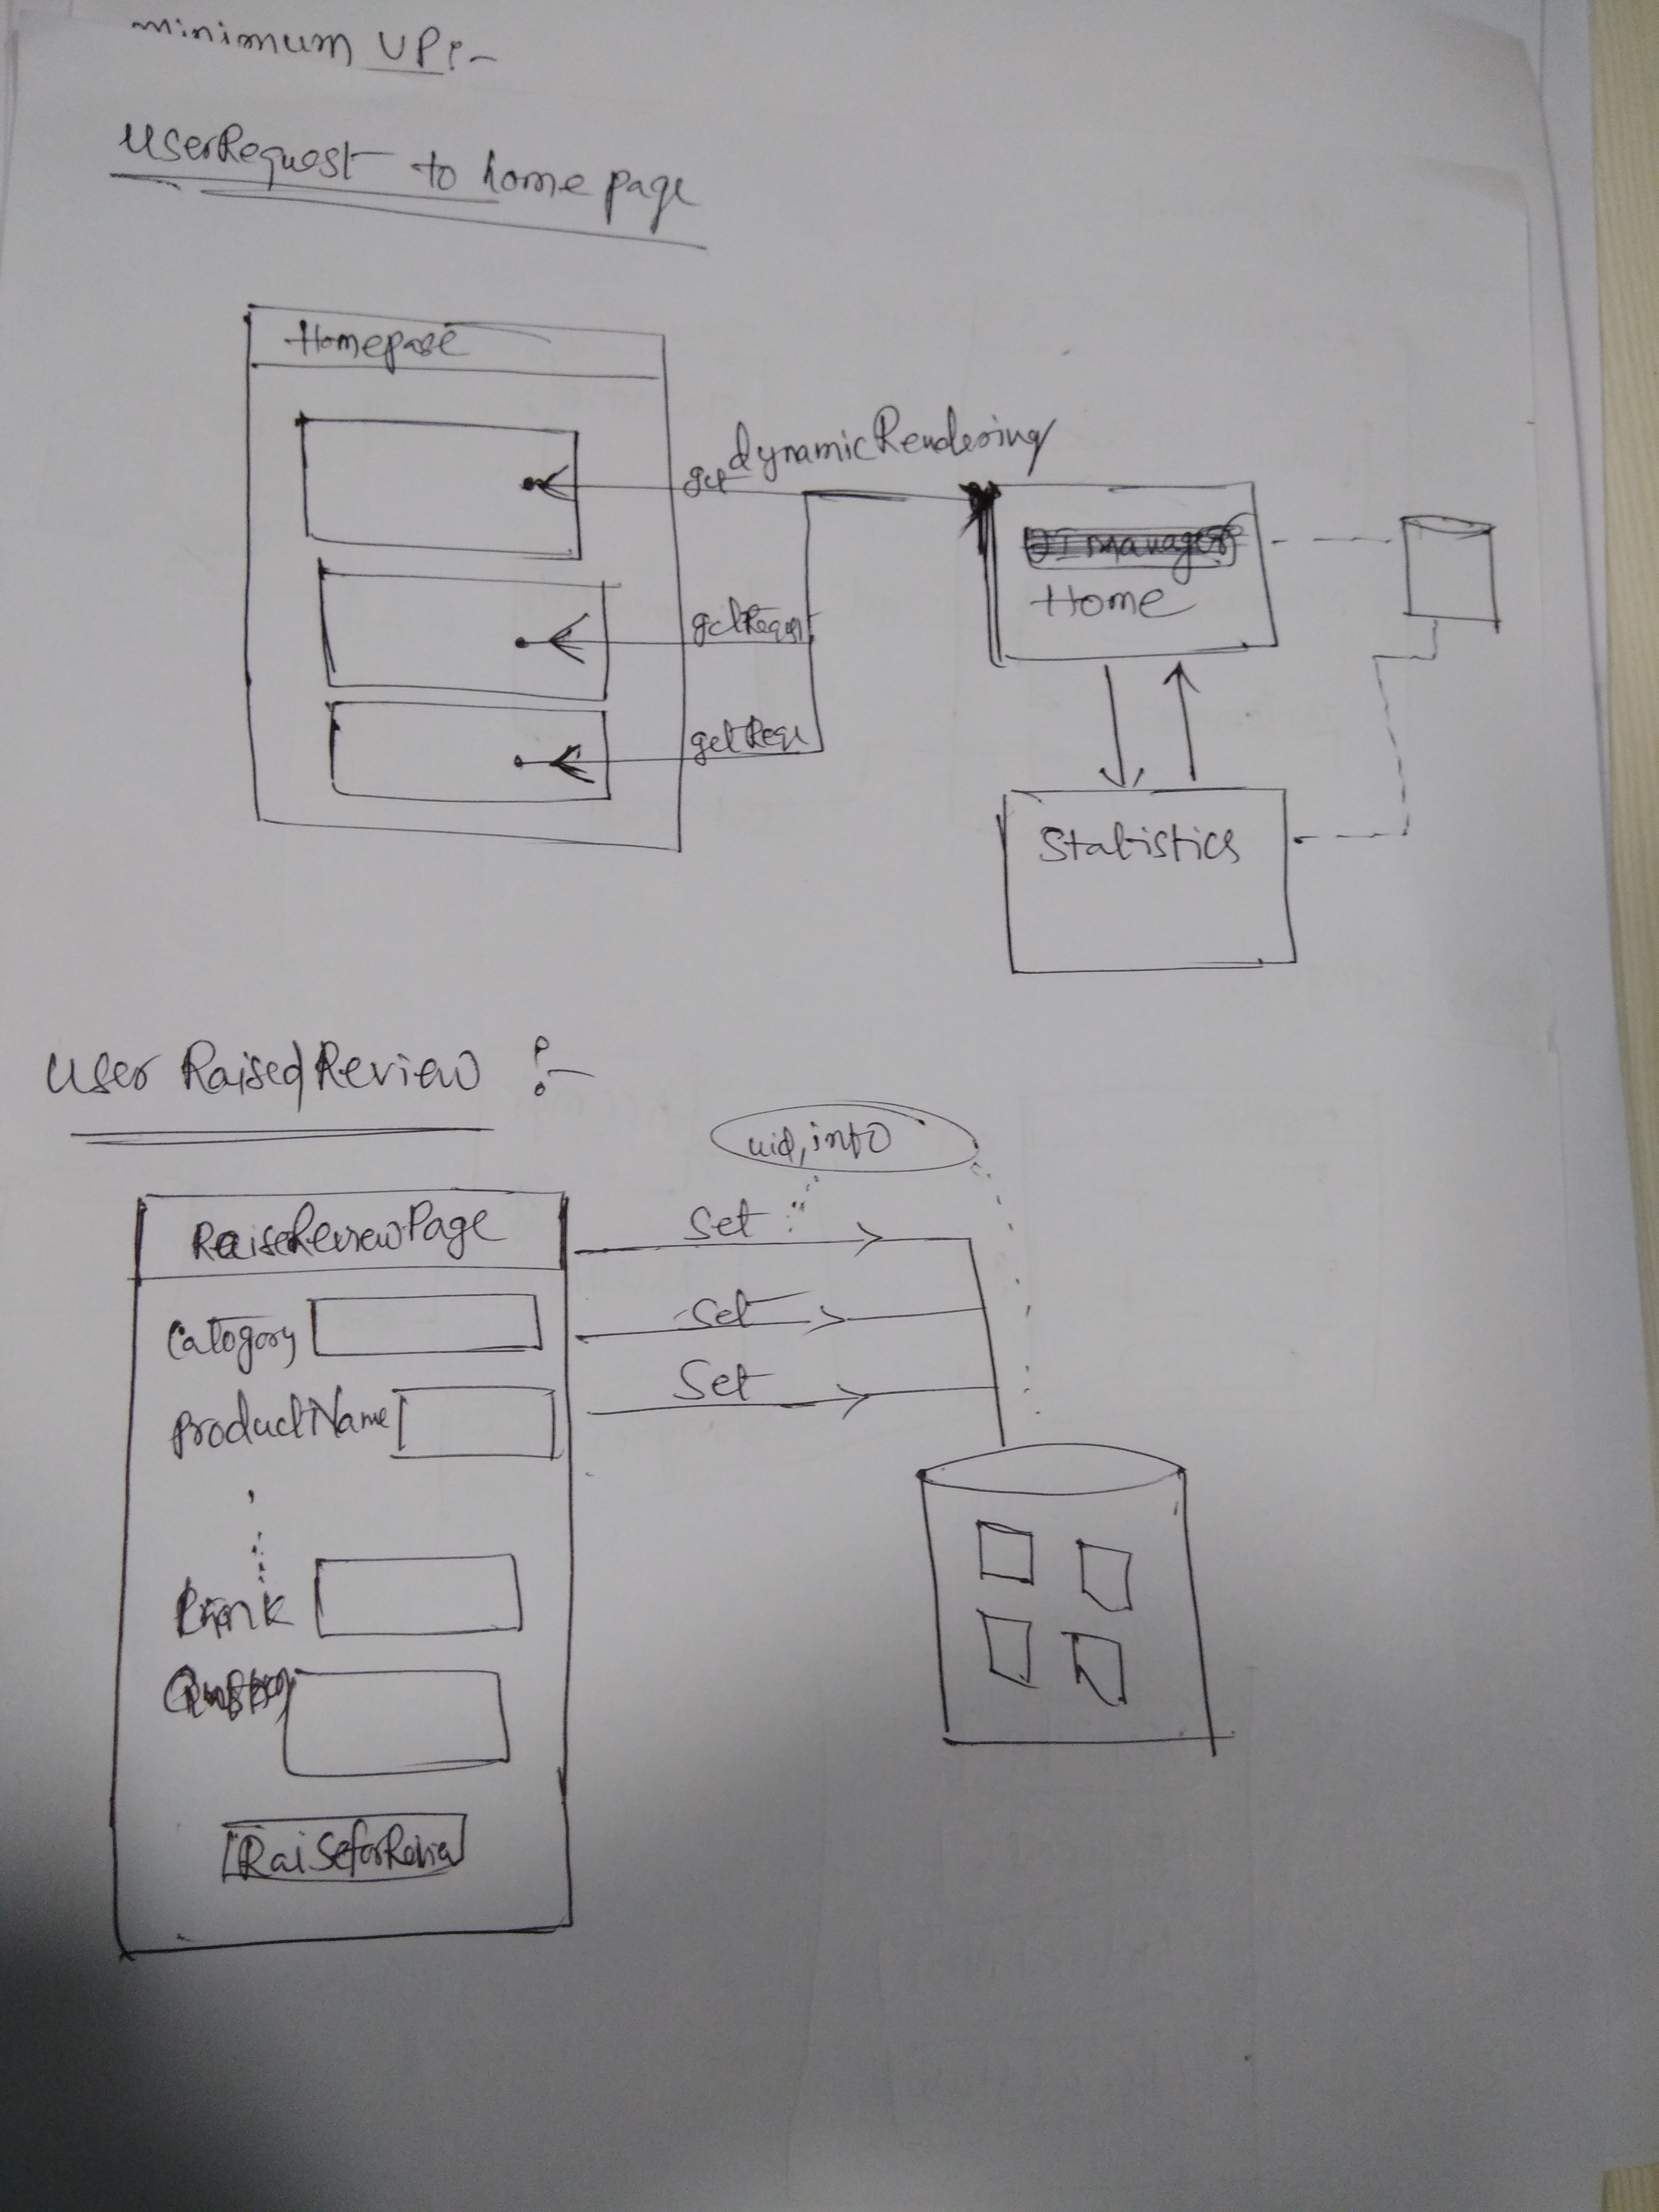 minimum UP:-
UserRequest to homepage
Homepage
get dynamicRendering
UI manager
Home
getRequest
getRequ
Statistics
User RaisedReview :-
uid, info
RaiseReviewPage
Set
Category
Set
ProductName
Set
Link
RaiseforReview